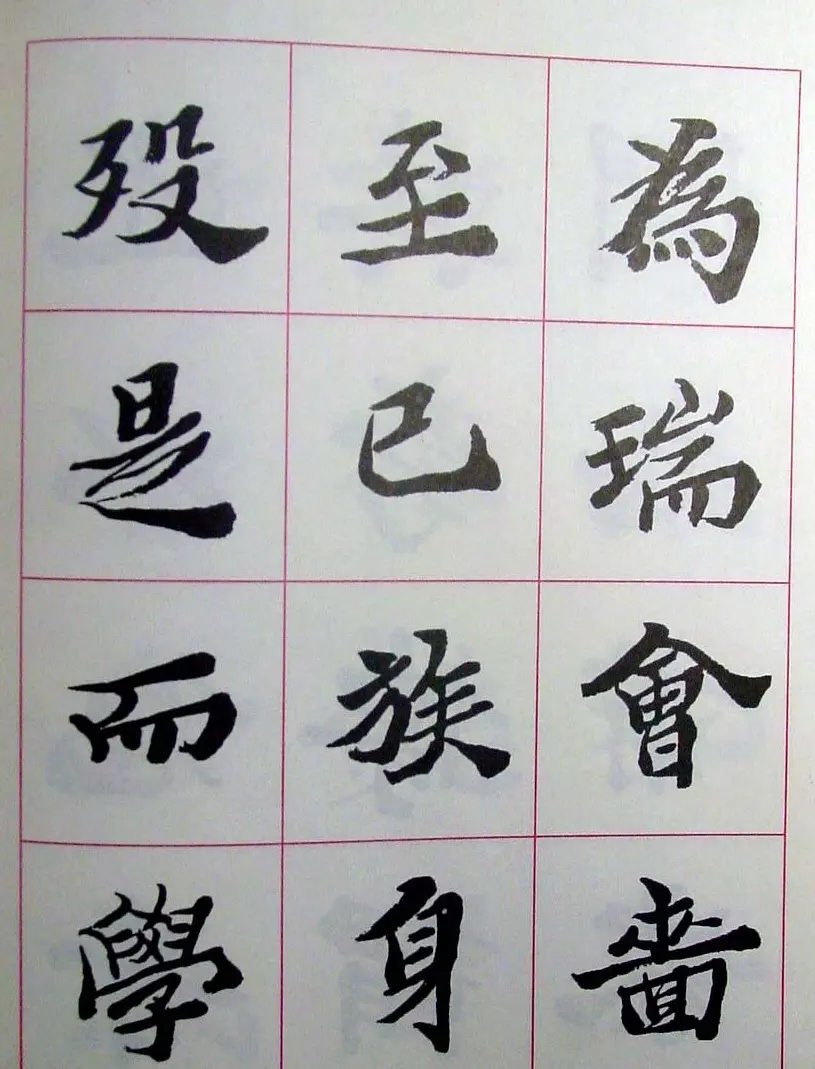 為瑞會嗇
至已族身
歿是而學